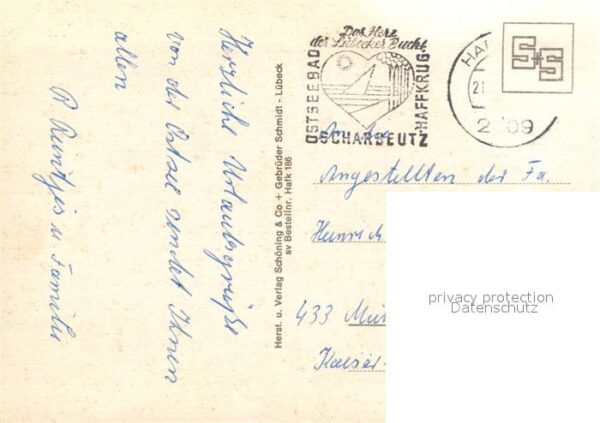 Herzliche Urlaubsgrüße
von der Ostsee sendet Ihnen
allen
u Familie
Herst. u. Verlag Schöning & Co + Gebrüder Schmidt - Lübeck
sv Bestellnr. Hafk 186
Das Herz
der Lübecker Bucht
OSTSEEBAD
SCHARBEUTZ
HAFFKRUG
HA
21
2409
S+S
An die
Angestellten der Fa.
Heinrich
433 Mü
Kaiser-
privacy protection
Datenschutz